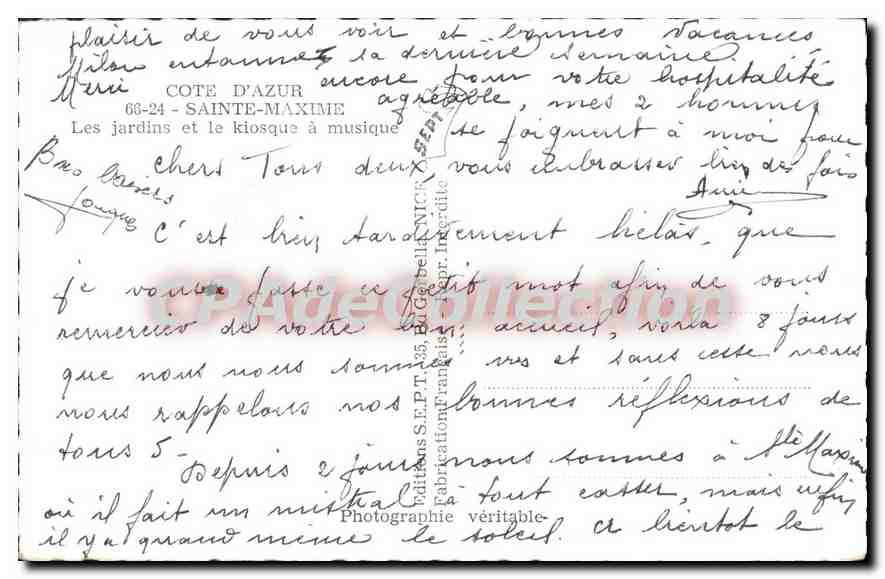 plaisir de vous voir et bonnes vacances
entamez sa dernière semaine.
Merci encore pour votre hospitalité
COTE D'AZUR
agréable, mes 2 hommes
66-24 - SAINTE-MAXIME
se joignent à moi pour
Les jardins et le kiosque à musique
SEPT
Chers Tous deux, vous embrasser bien des fois
Bons baisers
C'est bien tardivement hélas, que
je vous fasse ce petit mot afin de vous
remercier de votre bon accueil, voilà 8 jours
que nous nous sommes vus et sans cesse nous
nous rappelons nos bonnes réflexions de
tous 5 -
Depuis 2 jours nous sommes à Ste Maxime
où il fait un mistral à tout casser, mais enfin
il y a quand même le soleil. et bientôt le
Photographie véritable
Editions S.E.P.T. - 35, NICE
Fabrication Française - Repr. Interdite
CPAdeCollection